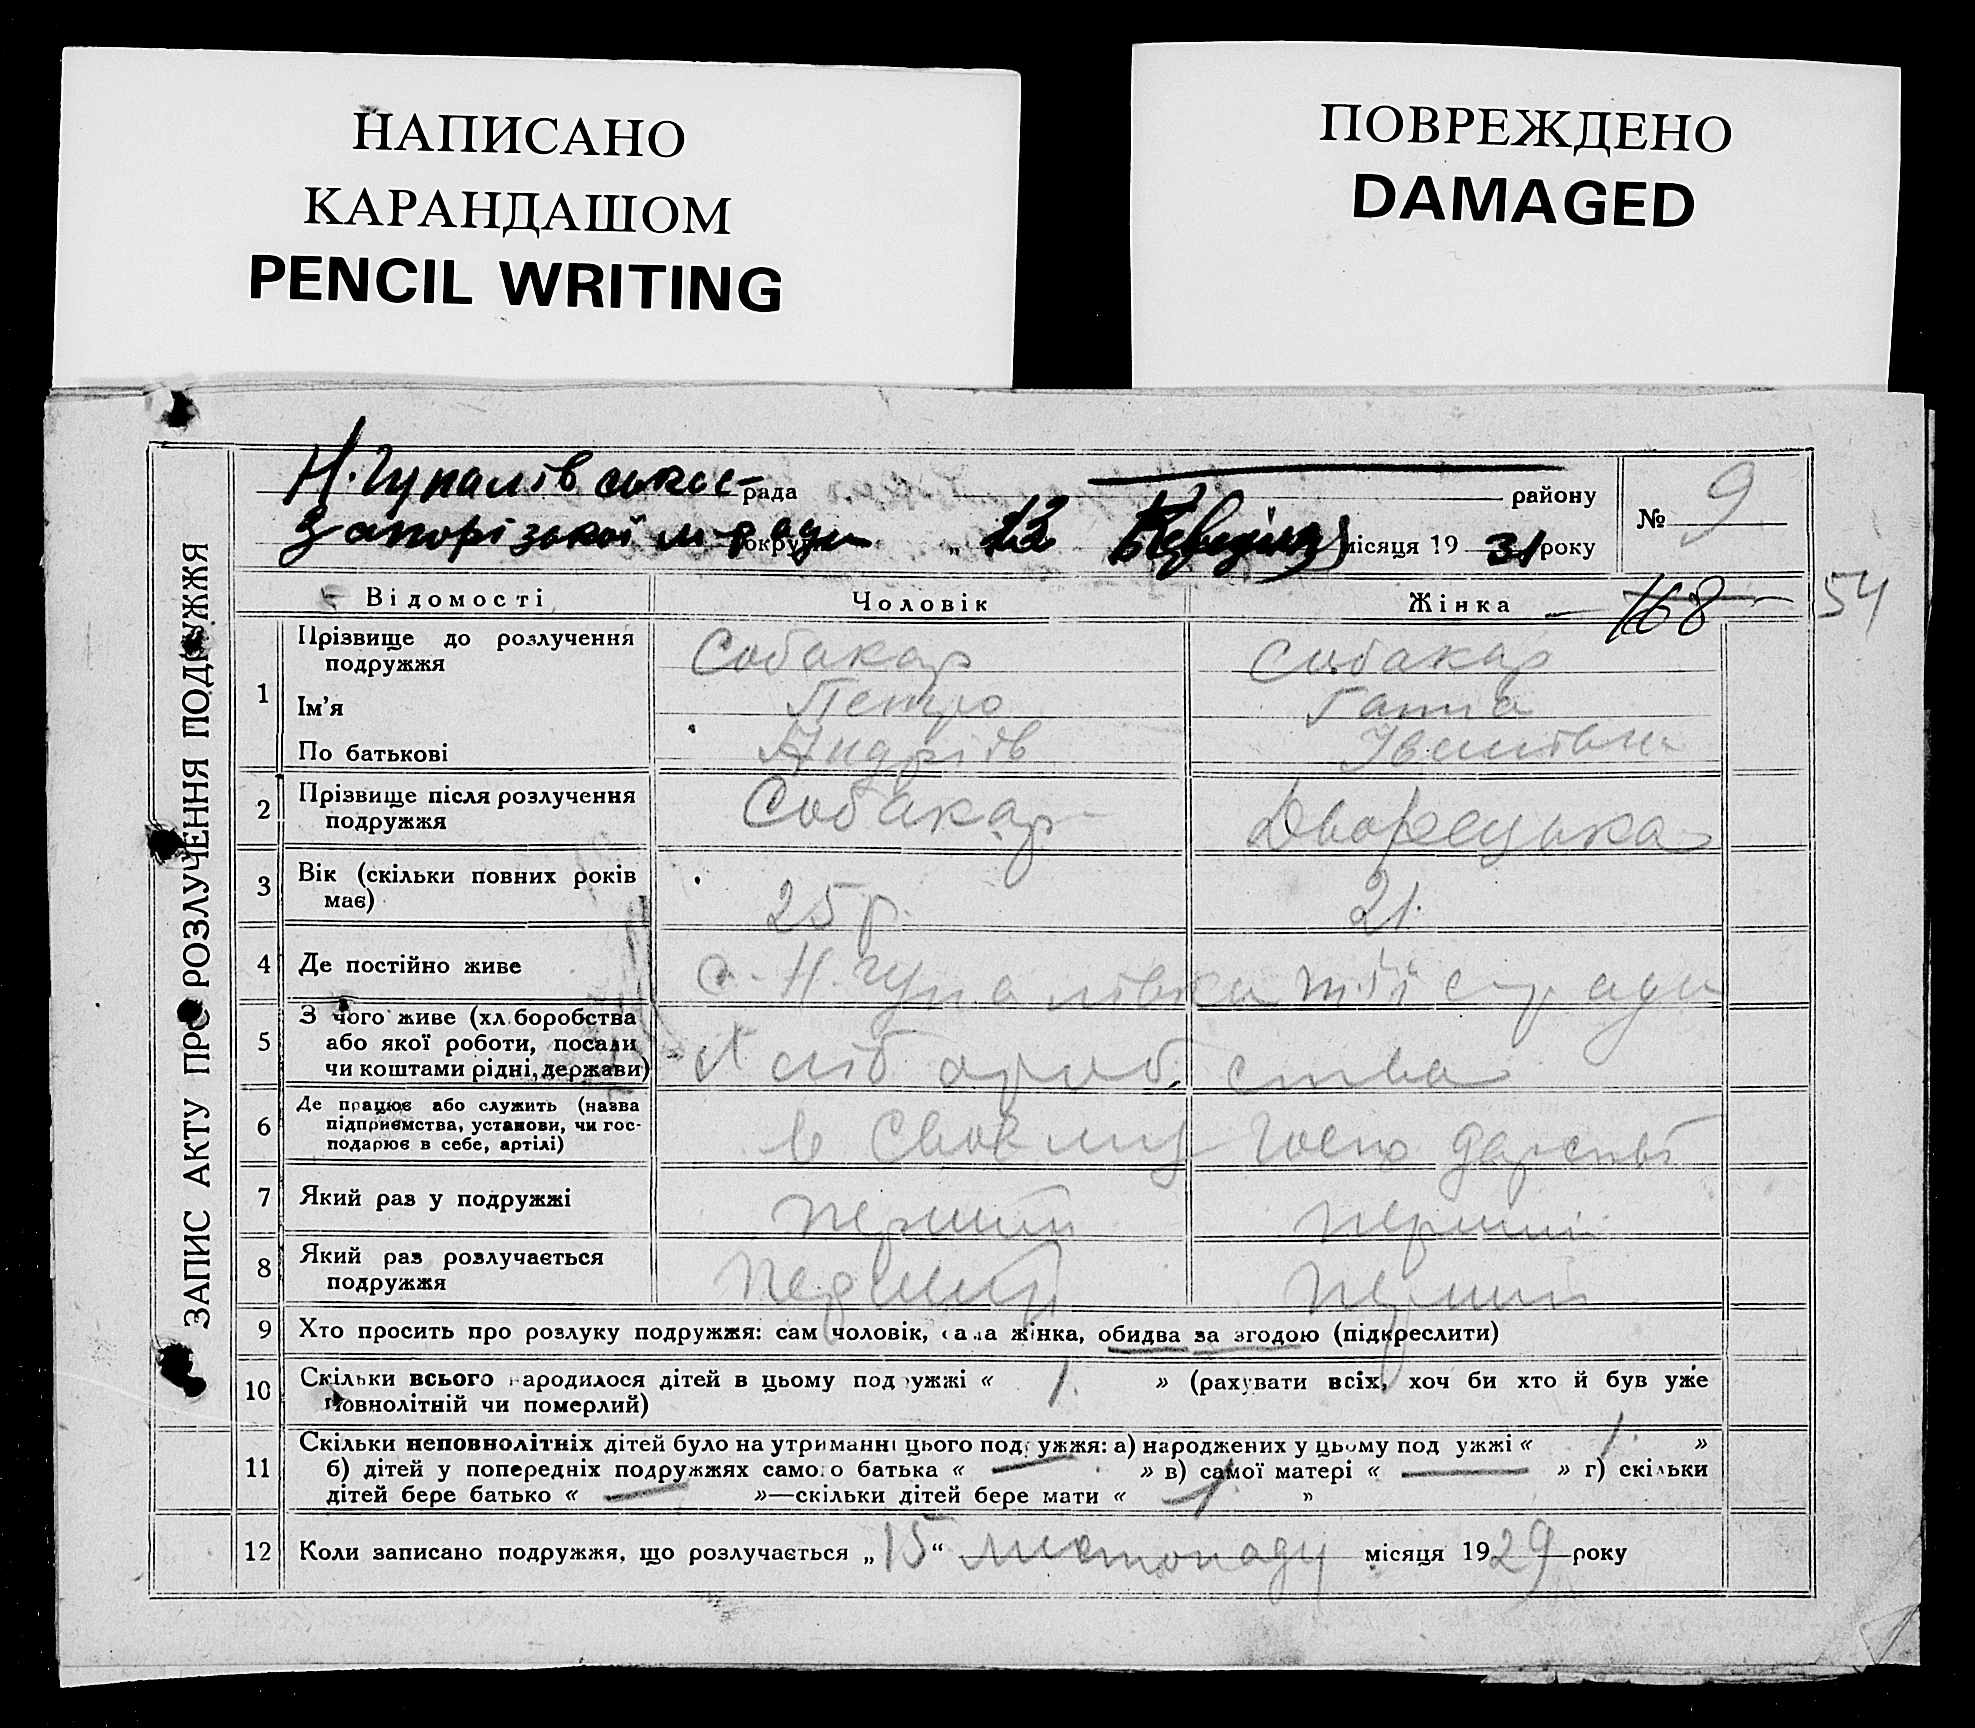 НАПИСАНО
КАРАНДАШОМ
PENCIL WRITING
ПОВРЕЖДЕНО
DAMAGED
ЗАПИС АКТУ ПРО РОЗЛУЧЕННЯ ПОДРУЖЖЯ
Н. Гупалівської рада району
Запорізької м-ради округи „ 13 місяця 19 31 року
№ 9
Відомості Чоловік Жінка 168 54
1 Прізвище до розлучення подружжя Собакар Собакар
Ім'я Петро Ганна
По батькові Андріїв Іванівна
2 Прізвище після розлучення подружжя Собакар Дворецька
3 Вік (скільки повних років має) 25 р. 21.
4 Де постійно живе с. Н. Гупалівка тії с-ради
5 З чого живе (хл.боробства або якої роботи, посади чи коштами рідні, держави) Хліборобства
6 Де працює або служить (назва підприємства, установи, чи господарює в себе, артілі) в своєму господарстві
7 Який раз у подружжі перший перший
8 Який раз розлучається подружжя перший перший
9 Хто просить про розлуку подружжя: сам чоловік, сама жінка, обидва за згодою (підкреслити)
10 Скільки всього народилося дітей в цьому подружжі « 1. » (рахувати всіх, хоч би хто й був уже
повнолітній чи померлий)
11 Скільки неповнолітніх дітей було на утриманні цього подружжя: а) народжених у цьому подружжі « 1. »
б) дітей у попередніх подружжях самого батька « — » в) самої матері « — » г) скільки
дітей бере батько « — »—скільки дітей бере мати « 1. »
12 Коли записано подружжя, що розлучається „ 15 “ листопаду місяця 19 29 року